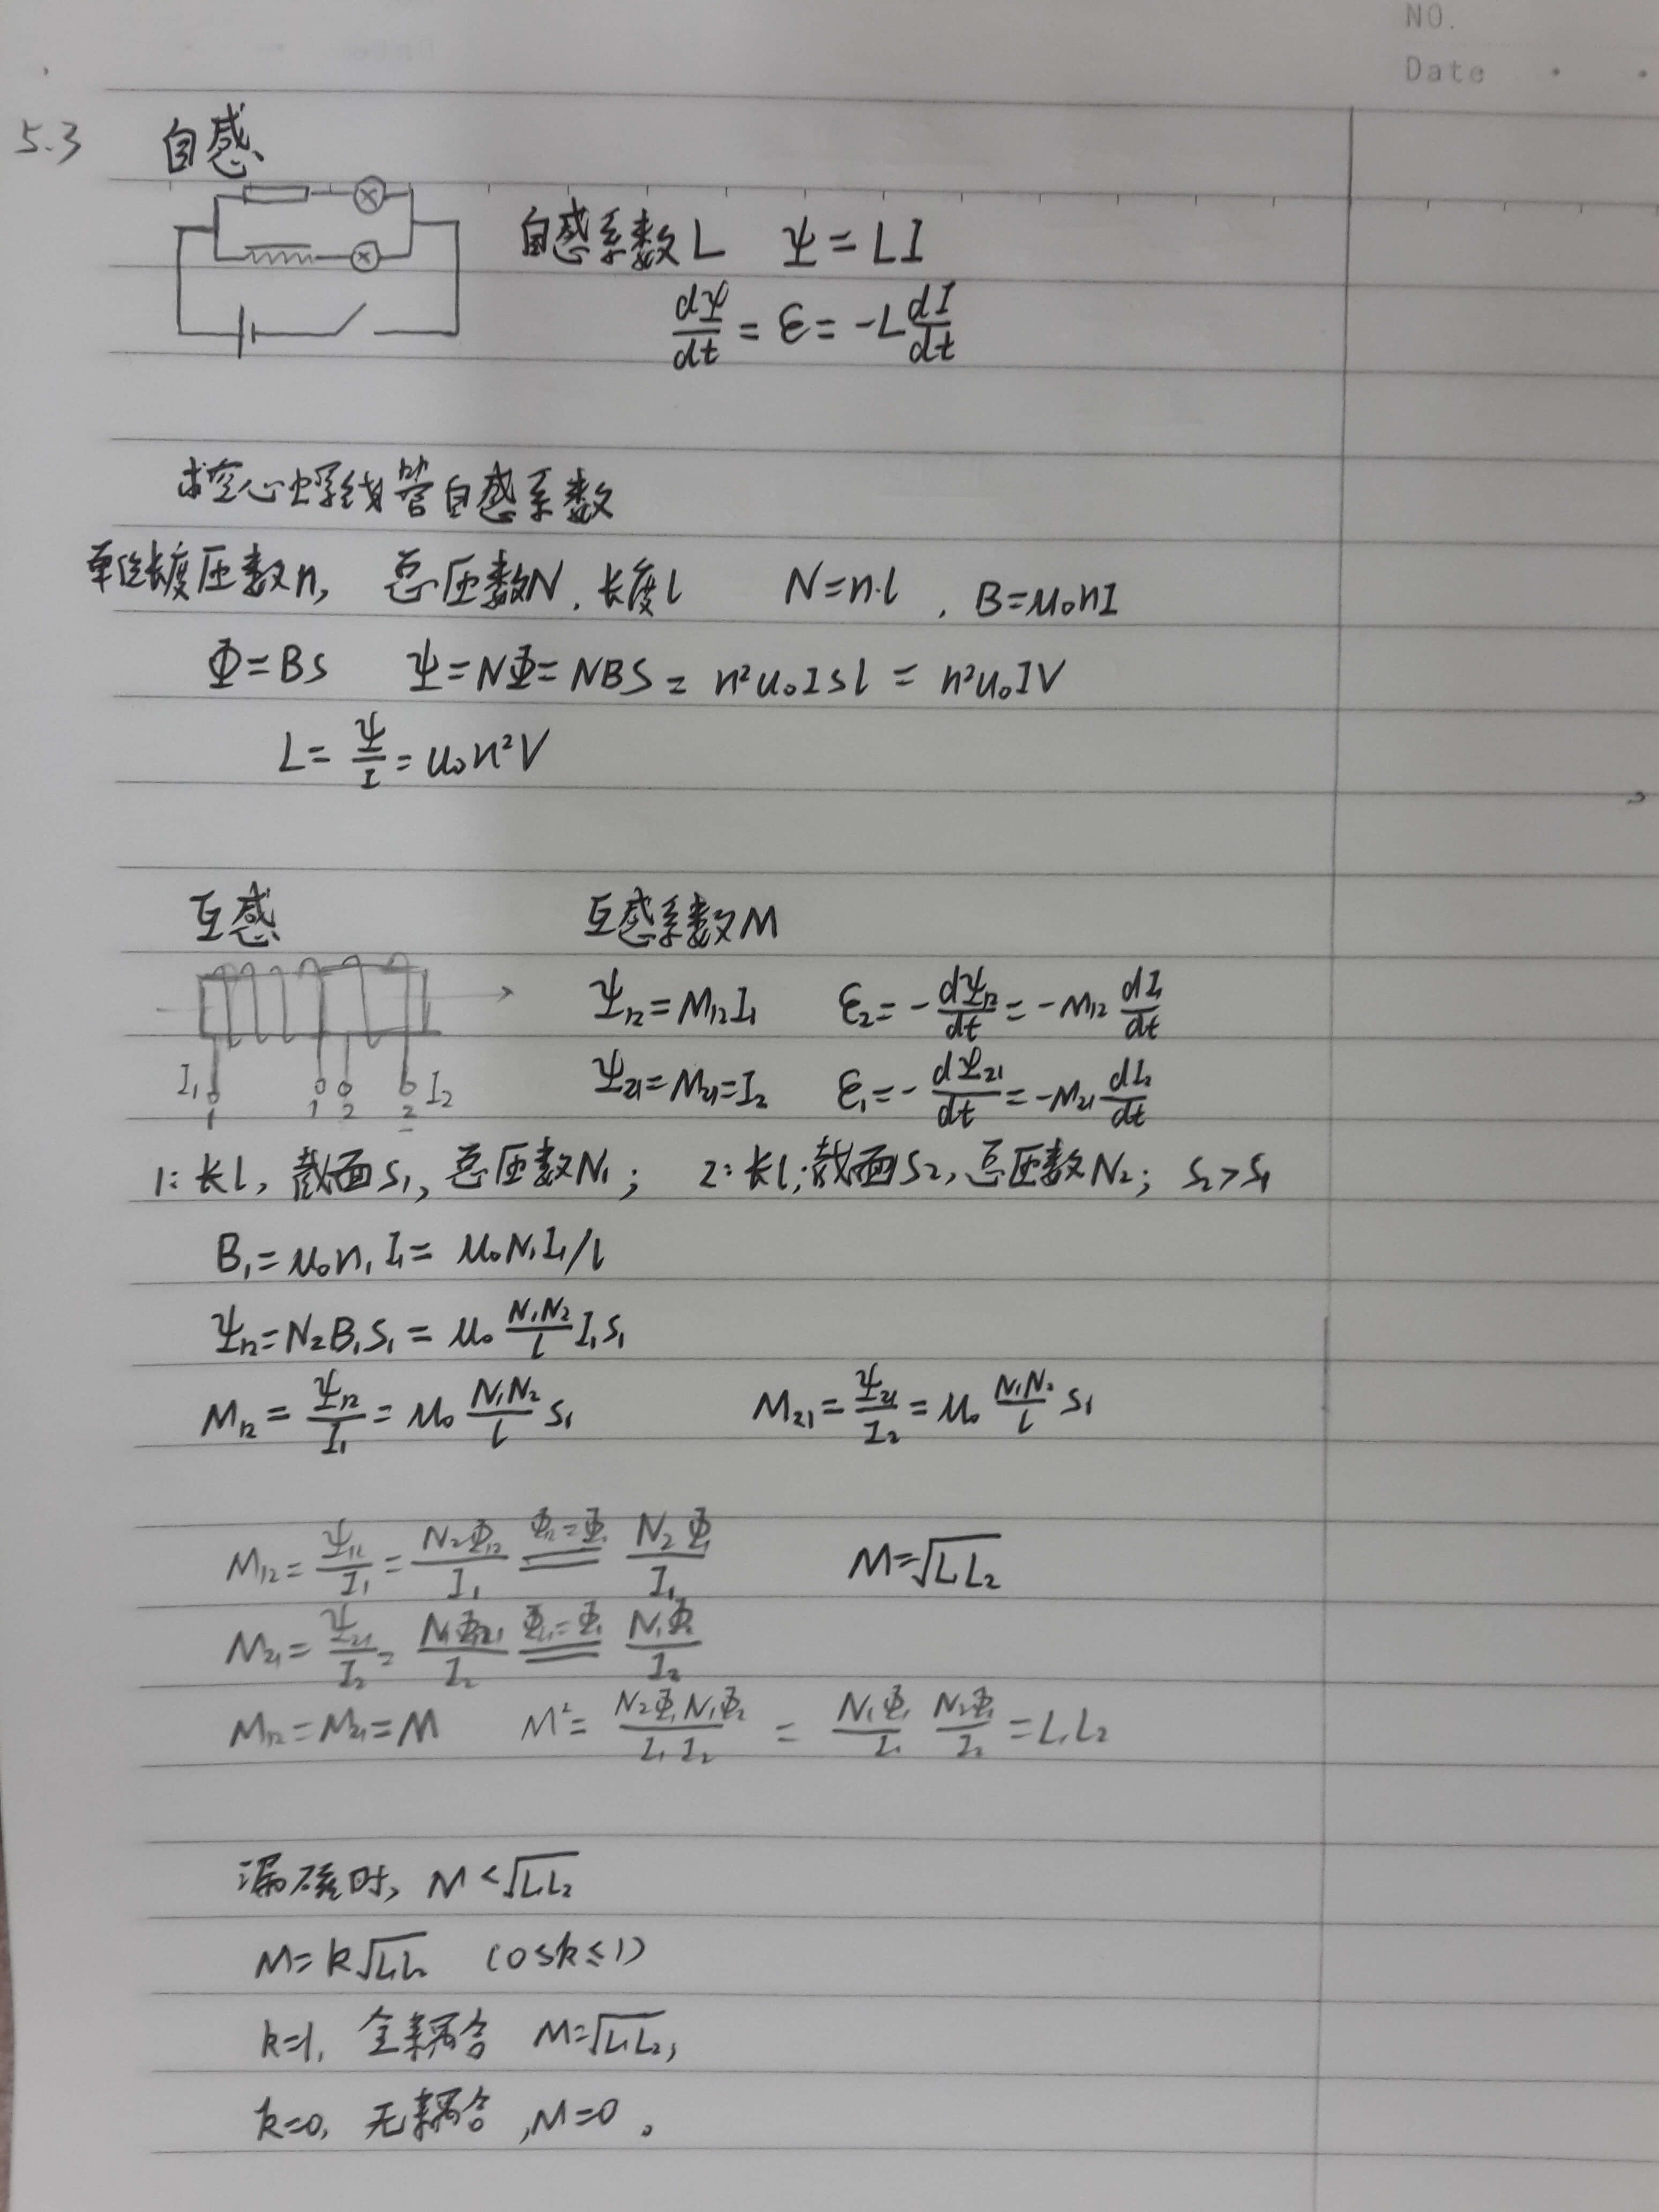 NO.
Date
5.3 自感
自感系数L Ψ=LI
dΨ/dt = ε = -L dI/dt
求空心螺线管自感系数
单位长度匝数n, 总匝数N, 长度l N=n·l , B=μ₀nI
Φ=BS Ψ=NΦ=NBS=n²μ₀ISl = n²μ₀IV
L=Ψ/I=μ₀n²V
互感 互感系数M
Ψ₁₂=M₁₂I₁ ε₂=-dΨ₁₂/dt=-M₁₂ dI₁/dt
Ψ₂₁=M₂₁=I₂ ε₁=-dΨ₂₁/dt=-M₂₁ dI₂/dt
I₁ 1 1 2 2 I₂
1:长l, 截面S₁, 总匝数N₁; 2:长l;截面S₂,总匝数N₂; S₂>S₁
B₁=μ₀n₁I₁=μ₀N₁I₁/l
Ψ₁₂=N₂B₁S₁=μ₀ N₁N₂/l I₁S₁
M₁₂=Ψ₁₂/I₁=μ₀ N₁N₂/l S₁ M₂₁=Ψ₂₁/I₂=μ₀ N₁N₂/l S₁
M₁₂=Ψ₁₂/I₁=N₂Φ₁₂/I₁ Φ₁₂=Φ₁ N₂Φ₁/I₁ M=√L₁L₂
M₂₁=Ψ₂₁/I₂=N₁Φ₂₁/I₂ N₁Φ₂/I₂
M₁₂=M₂₁=M M²=N₂Φ₁N₁Φ₂/I₁I₂ = N₁Φ₁/I₁ N₂Φ₂/I₂=L₁L₂
漏磁时, M<√L₁L₂
M=k√L₁L₂ (0≤k≤1)
k=1, 全耦合 M=√L₁L₂,
k=0, 无耦合 ,M=0 。